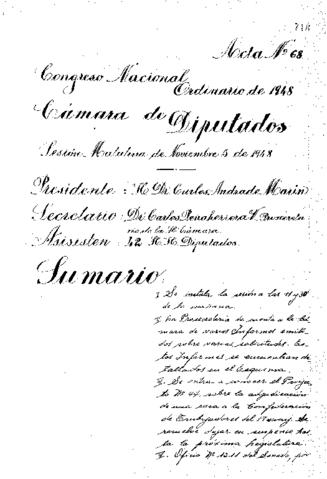 Acta Nº 68
Congreso Nacional
Ordinario de 1948
Cámara de Diputados
Sesión Matutina de Noviembre 5 de 1948
Presidente: H. Dr. Carlos Andrade Marín
Secretario: Dr. Carlos Peñaherrera V.
de la H. Cámara
Asisten 42 H.H. Diputados
Sumario
1. Se instala la sesión a las 11 y
de la mañana.
2. La Prosecretaría da cuenta a la Cá-
mara de varios Informes emiti-
dos sobre varias solicitudes. Es-
tos Informes se encuentran de-
tallados en el Esquema.
3. Se entra a conocer el Proyec-
to Nº 44, sobre la adjudicación
de una casa a la Confederación
de Trabajadores del Se
resuelve dejar en suspenso has-
ta la próxima legislatura.
4. Oficio Nº 1211 del Senado, por